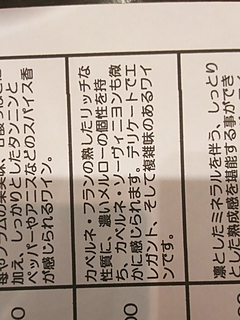 加え、しっかりとしたタンニンと
ペッパーやアニスなどのスパイス香
が感じられるワイン。
カベルネ・フランの熟したリッチな
性質に、濃いメルローの個性を持
ち、カベルネ・ソーヴィニヨンも微
かに感じられます。デリケートでエ
レガント、そして複雑味のあるワイ
ンです。
凛としたミネラルを伴う、しっとり
とした熟成感を堪能する事ができ